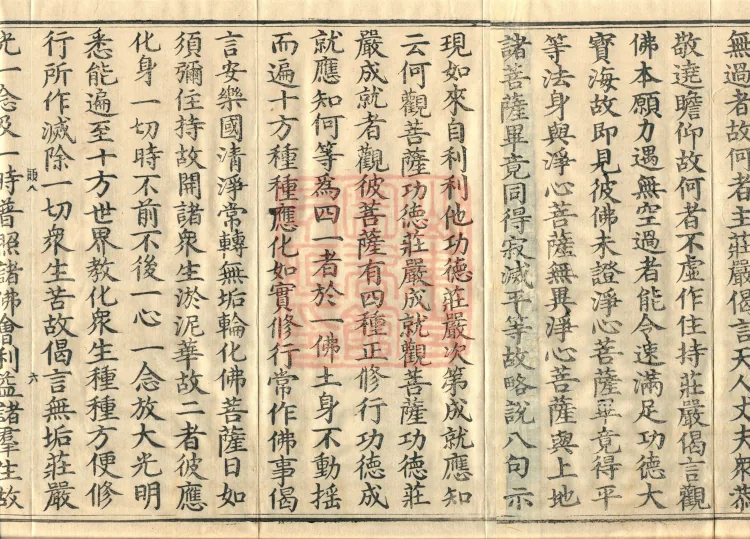 無過者故何者主莊嚴偈言天人丈夫衆恭
敬遶瞻仰故何者不虛作住持莊嚴偈言觀
佛本願力遇無空過者能令速滿足功德大
寶海故即見彼佛未證淨心菩薩畢竟得平
等法身與淨心菩薩無異淨心菩薩與上地
諸菩薩畢竟同得寂滅平等故略說八句示
現如來自利利他功德莊嚴次第成就應知
云何觀菩薩功德莊嚴成就觀菩薩功德莊
嚴成就者觀彼菩薩有四種正修行功德成
就應知何等爲四一者於一佛土身不動搖
而遍十方種種應化如實修行常作佛事偈
言安樂國清淨常轉無垢輪化佛菩薩日如
須彌住持故開諸衆生淤泥華故二者彼應
化身一切時不前不後一心一念放大光明
悉能遍至十方世界教化衆生種種方便修
行所作滅除一切衆生苦故偈言無垢莊嚴
六
光一念及一時普照諸佛會利益諸羣生故